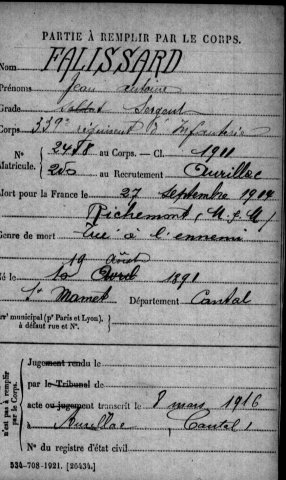 PARTIE À REMPLIR PAR LE CORPS.
Nom FALISSARD
Prénoms Jean Antoine
Grade Soldat Sergent
Corps 339e régiment d'Infanterie
N° 2478 au Corps. — Cl. 1911
Matricule. 250 au Recrutement Aurillac
Mort pour la France le 27 Septembre 1914
Richemont (M & M)
Genre de mort tué à l'ennemi
19 Août
Né le 10 Avril 1891
St Mamet Département Cantal
Arrt municipal (pr Paris et Lyon), à défaut rue et N°.
n'est pas à remplir par le Corps.
Jugement rendu le
par le Tribunal de
acte ou jugement transcrit le 8 mars 1916
à Aurillac (Cantal)
N° du registre d'état civil
534-708-1921. [26434.]